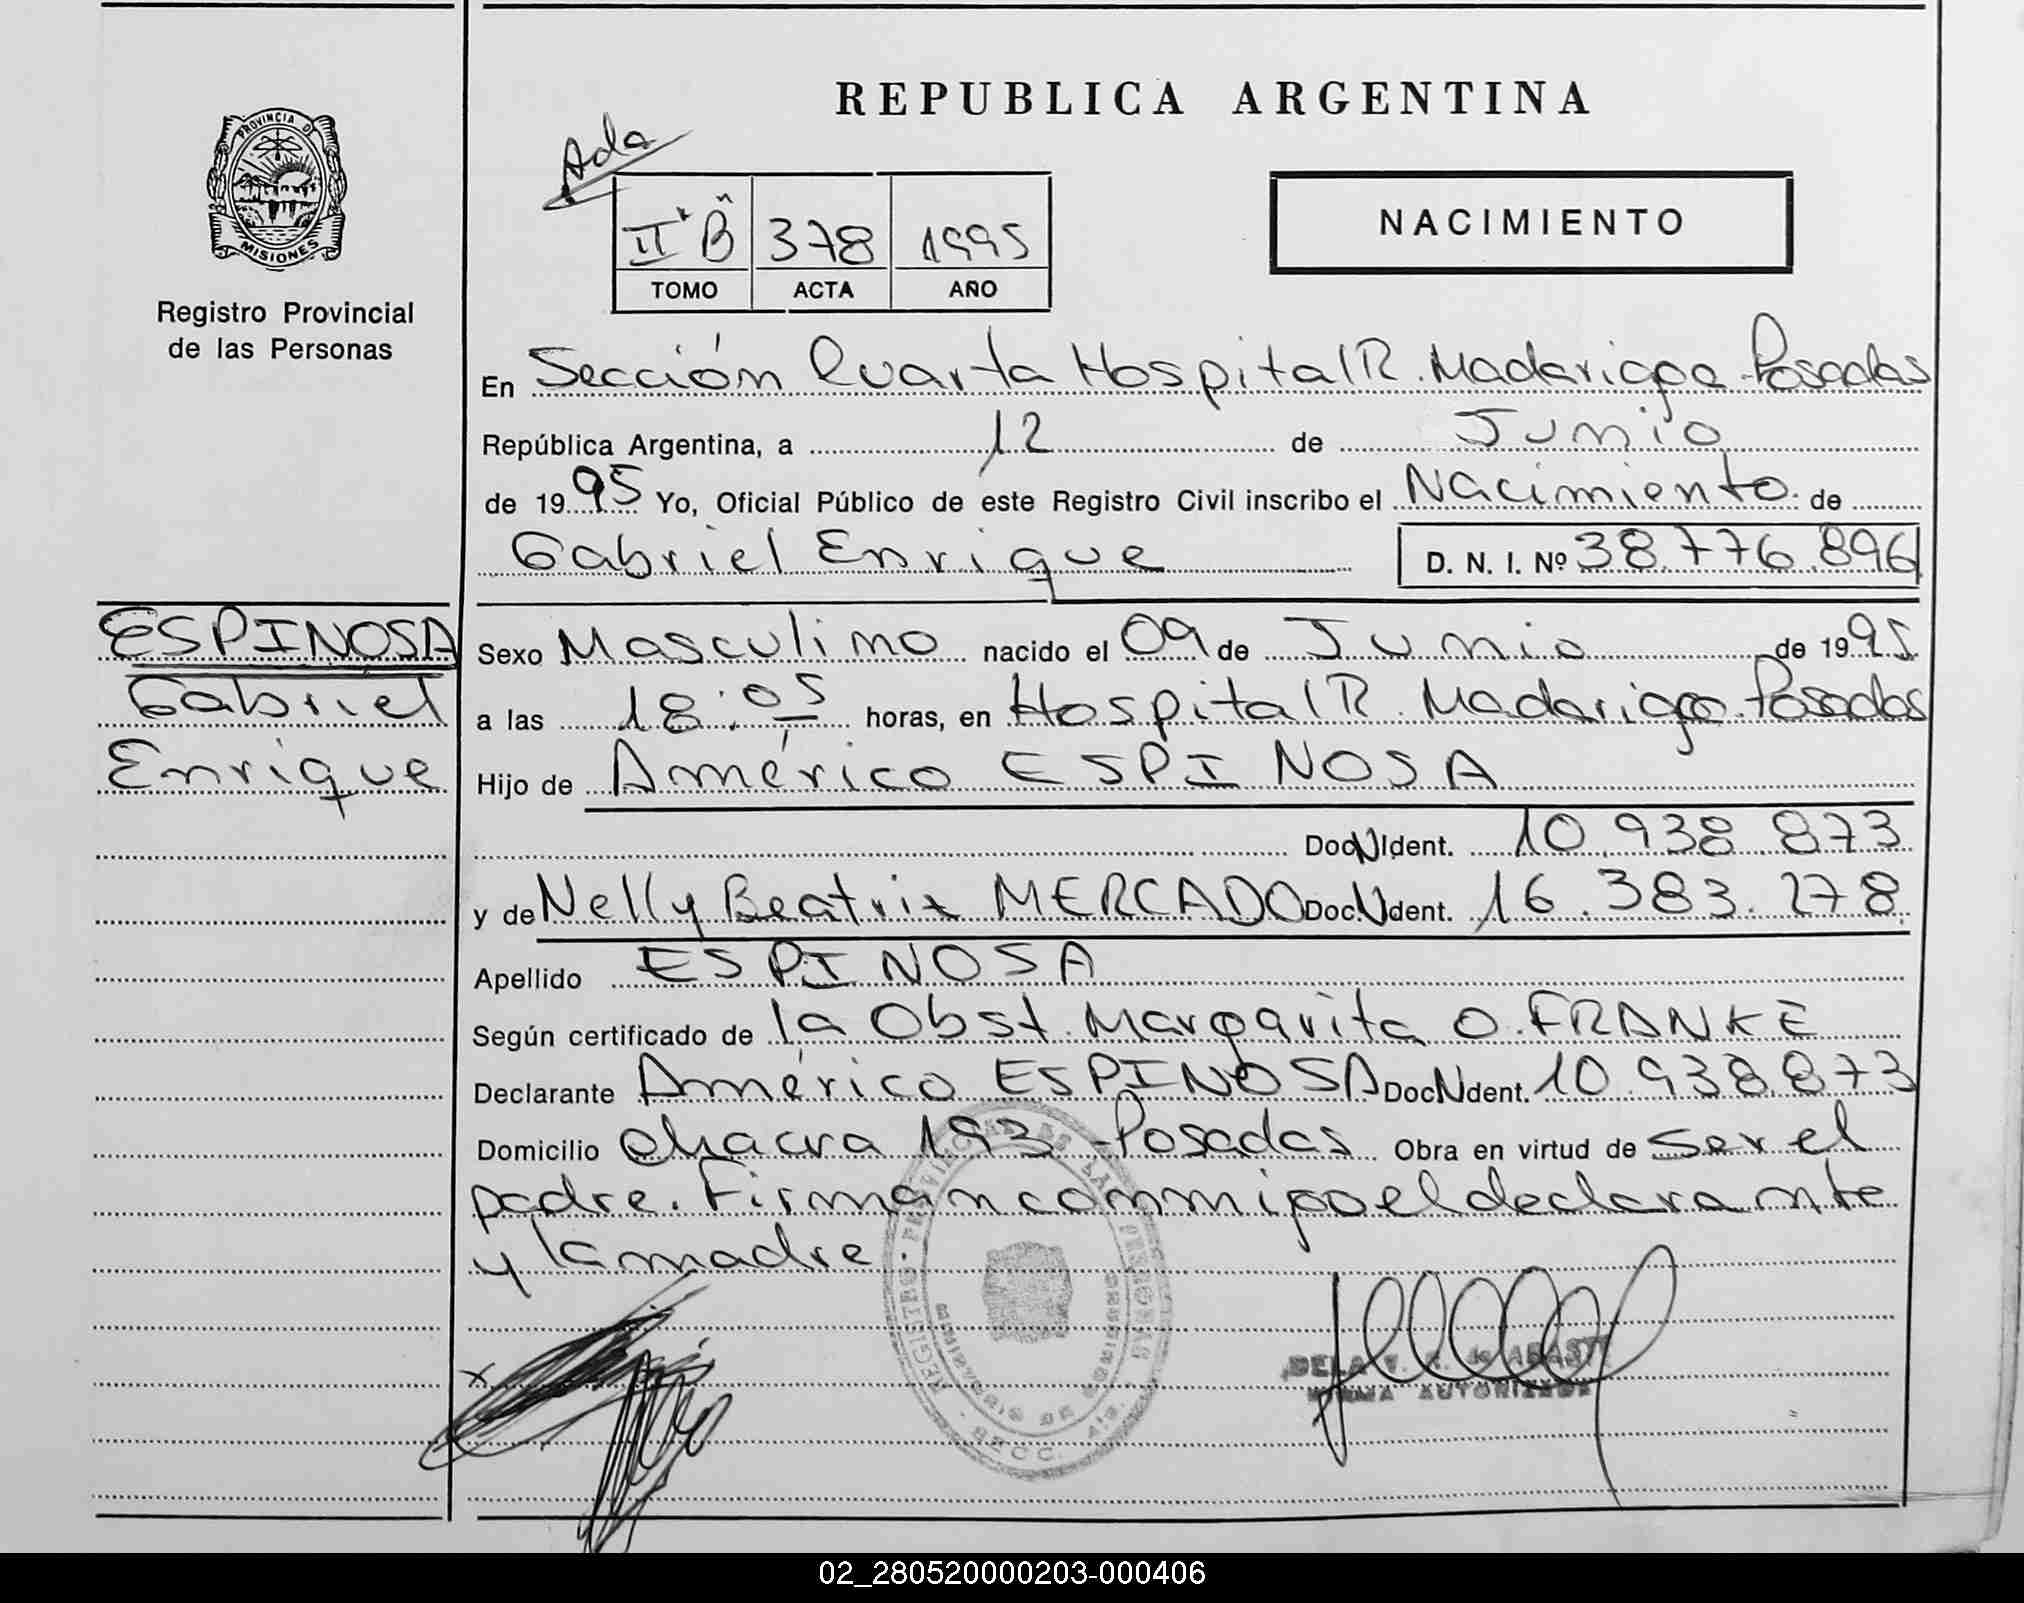 REPUBLICA ARGENTINA
PROVINCIA D
MISIONES
Registro Provincial
de las Personas
Ada
II B 378 1995
TOMO ACTA AÑO
NACIMIENTO
En Sección Cuarta Hospital R. Madariaga - Posadas
República Argentina, a 12 de Junio
de 1995 Yo, Oficial Público de este Registro Civil inscribo el Nacimiento de
Gabriel Enrique D. N. I. Nº 38.776.896
ESPINOSA
Gabriel
Enrique
Sexo Masculino nacido el 09 de Junio de 1995
a las 18:05 horas, en Hospital R. Madariaga. Posadas
Hijo de Américo ESPINOSA
Doc N Ident. 10.938.873
y de Nelly Beatriz MERCADO Doc N Ident. 16.383.278
Apellido ESPINOSA
Según certificado de la Obst. Margarita O. FRANKE
Declarante Américo ESPINOSA Doc N Ident. 10.938.873
Domicilio chacra 193 - Posadas Obra en virtud de ser el
padre. Firman conmigo el declarante
y la madre
REGISTRO PROVINCIAL DE LAS PERSONAS
SECC. 4ta.
FIRMA AUTORIZADA
02_280520000203-000406